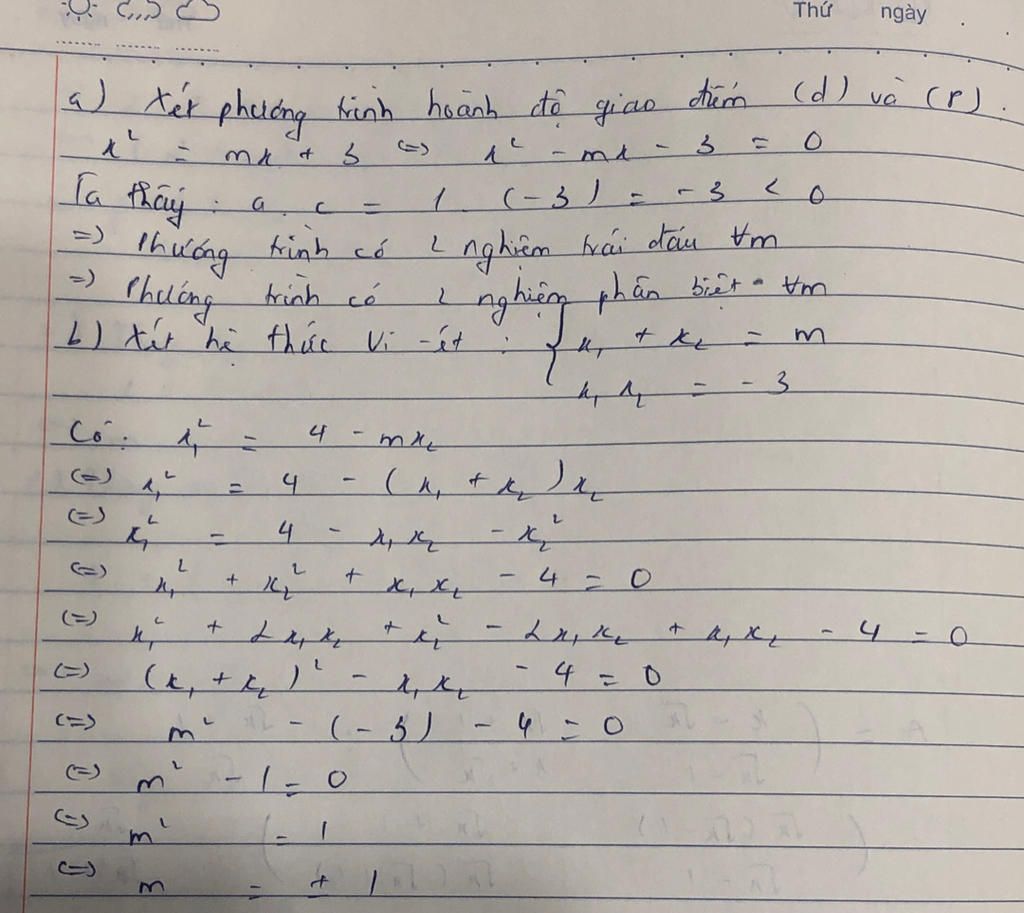 Thứ ngày
a) Xét phương trình hoành độ giao điểm (d) và (P).
x² = mx + 3 (=) x² - mx - 3 = 0
Ta thấy: a.c = 1.(-3) = -3 < 0
=) Phương trình có 2 nghiệm trái dấu ∀m
=) Phương trình có 2 nghiệm phân biệt ∀m
b) Xét hệ thức Vi-ét: { x₁ + x₂ = m
x₁x₂ = -3
Có: x₁² = 4 - mx₂
(=) x₁² = 4 - (x₁ + x₂)x₂
(=) x₁² = 4 - x₁x₂ - x₂²
(=) x₁² + x₂² + x₁x₂ - 4 = 0
(=) x₁² + 2x₁x₂ + x₂² - 2x₁x₂ + x₁x₂ - 4 = 0
(=) (x₁ + x₂)² - x₁x₂ - 4 = 0
(=) m² - (-3) - 4 = 0
(=) m² - 1 = 0
(=) m² = 1
(=) m = ±1